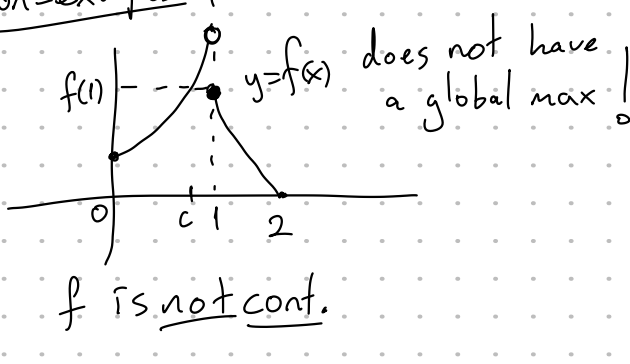 f(1)
y=f(x)
does not have
a global max!
0
c
1
2
f is not cont.